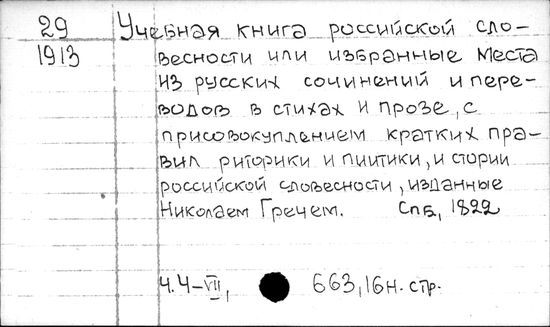 29 Учебная книга российской сло-
1913 весности или избранные места
из русских сочинений и пере-
водов в стихах и прозе, с
присовокуплением кратких пра-
вил риторики и пиитики, и стории
российской словесности, изданные
Николаем Гречем. Спб, 1822
Ч.4-VII, 663, 16н. стр.